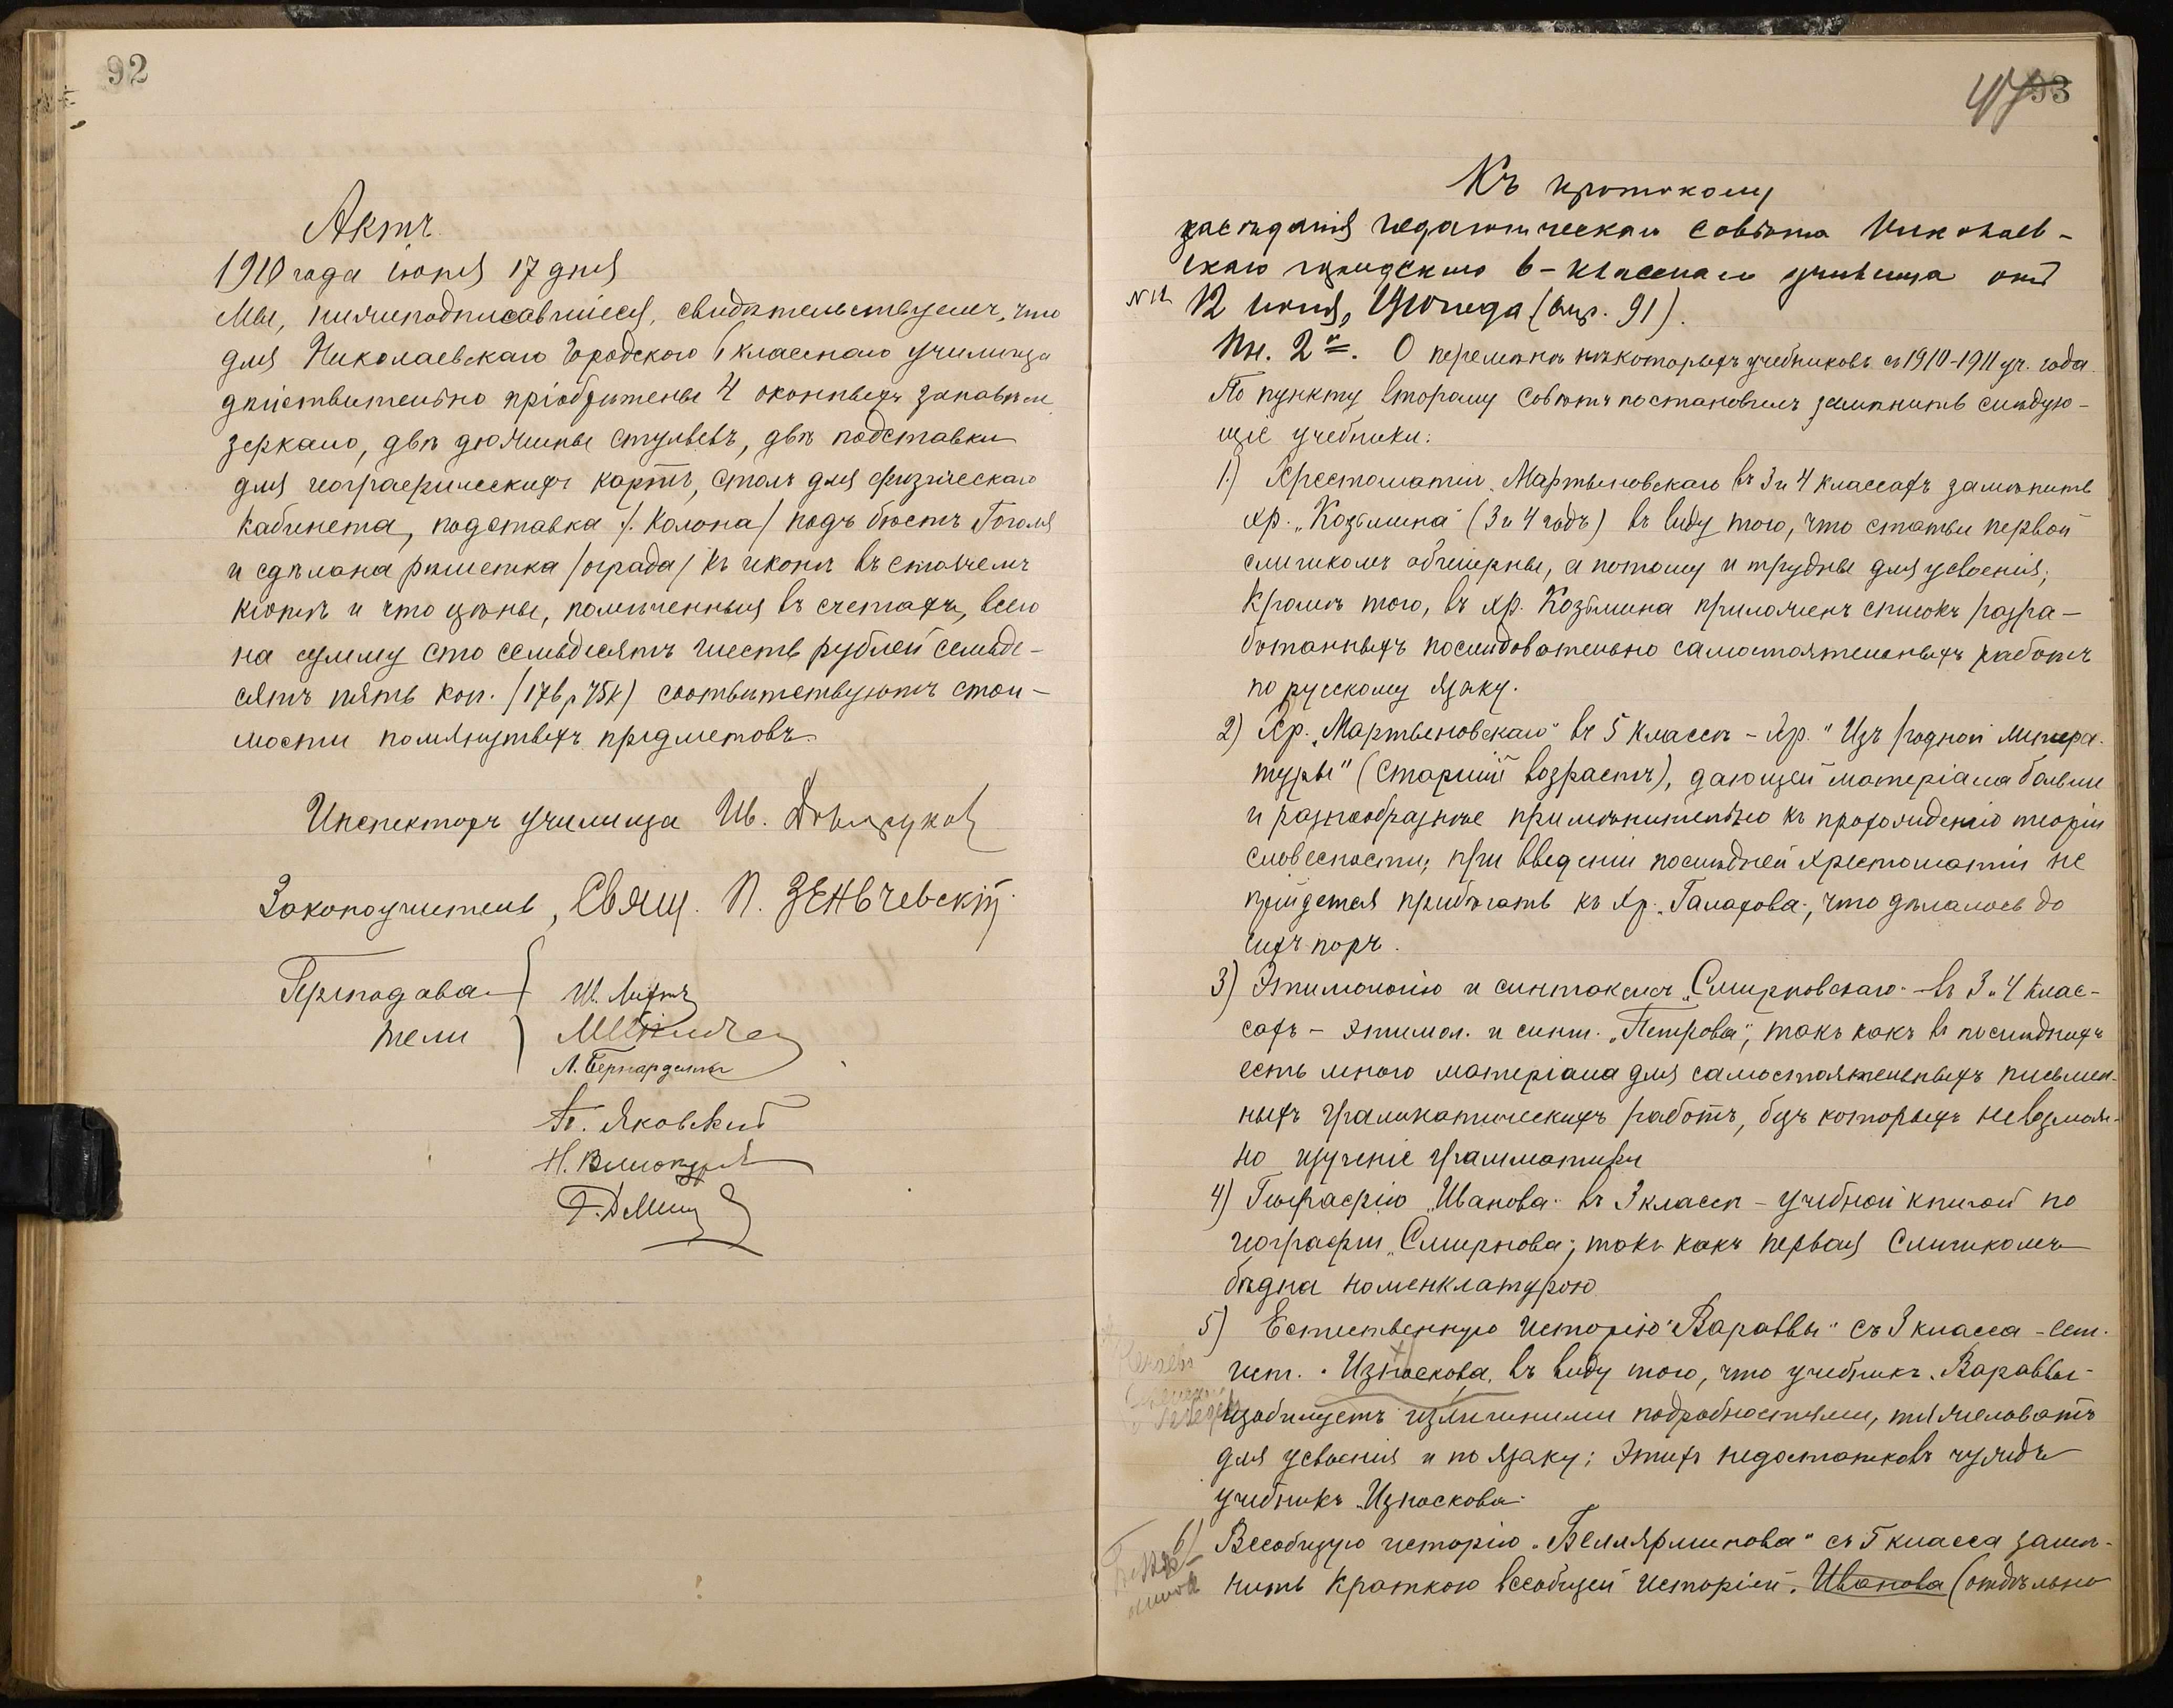 92
Актъ
1910 года іюня 17 дня
Мы, нижеподписавшіеся, свидѣтельствуемъ, что
для Николаевскаго Городского 6 класснаго училища
дѣйствительно пріобрѣтены 4 оконныхъ занавѣси
зеркало, двѣ дюжины стульевъ, двѣ подставки
для географическихъ картъ, столъ для физическаго
кабинета, подставка /колона/ подъ бюстъ Гоголя
и сдѣлана рѣшетка /ограда/ къ иконѣ въ стоячемъ
кіотѣ и что цѣны, помѣченныя въ счетахъ, всего
на сумму сто семьдесятъ шесть рублей семьде-
сятъ пять коп. /176 р 75 к/ соотвѣтствуютъ стои-
мости помянутыхъ предметовъ.
Инспекторъ училища Ив.
Законоучитель, Свящ. П. Зеньчевскій
Преподава-
тели
Л. Бернардскій
Яковскій
Н.
93
Къ протоколу
засѣданія педагогическаго совѣта Николаев-
скаго городского 6-класснаго училища отъ
№ 12 12 іюня, 1910 года (стр. 91).
Пн. 2й. О перемѣнѣ нѣкоторыхъ учебниковъ съ 1910-1911 уч. года
По пункту второму Совѣтъ постановилъ замѣнить слѣдую-
щіе учебники:
1.) Хрестоматіи „Мартыновскаго въ 3 и 4 классахъ замѣнить
хр. „Козьмина" (3 и 4 годъ) въ виду того, что статьи первой
слишкомъ обширны, а потому и трудны для усвоенія;
кромѣ того, въ хр. Козьмина приложенъ списокъ разра-
ботанныхъ послѣдовательно самостоятельныхъ работъ
по русскому языку.
2) Хр. „Мартыновскаго" въ 5 классѣ - хр. "Изъ родной литера-
туры" (старшій возрастъ), дающей матеріала больше
и разнообразнѣе примѣнительно къ прохожденію теоріи
словесности; при введеніи послѣдней хрестоматіи не
прійдется прибѣгать къ хр. „Галахова", что дѣлалось до
сихъ поръ.
3) Этимологію и синтаксисъ „Смирновскаго" - въ 3 и 4 клас-
сахъ - этимол. и синт. „Петрова", такъ какъ въ послѣднихъ
есть много матеріала для самостоятельныхъ письмен-
ныхъ грамматическихъ работъ, безъ которыхъ невозмож-
но изученіе грамматики
4) Географію „Иванова" въ 3 классѣ - учебной книгой по
географіи „Смирнова", такъ какъ первая слишкомъ
бѣдна номенклатурою
5) Естественную исторію "Вараввы" съ 3 класса - ест.
ист. „Износкова, въ виду того, что учебникъ „Вараввы"
изобилуетъ излишними подробностями, тяжеловатъ
для усвоенія и по языку; этихъ недостатковъ чуждъ
учебникъ „Износкова"
6) Всеобщую исторію „Беллярминова" съ 5 класса замѣ-
нить краткою всеобщей исторіей „Иванова (отдѣльно